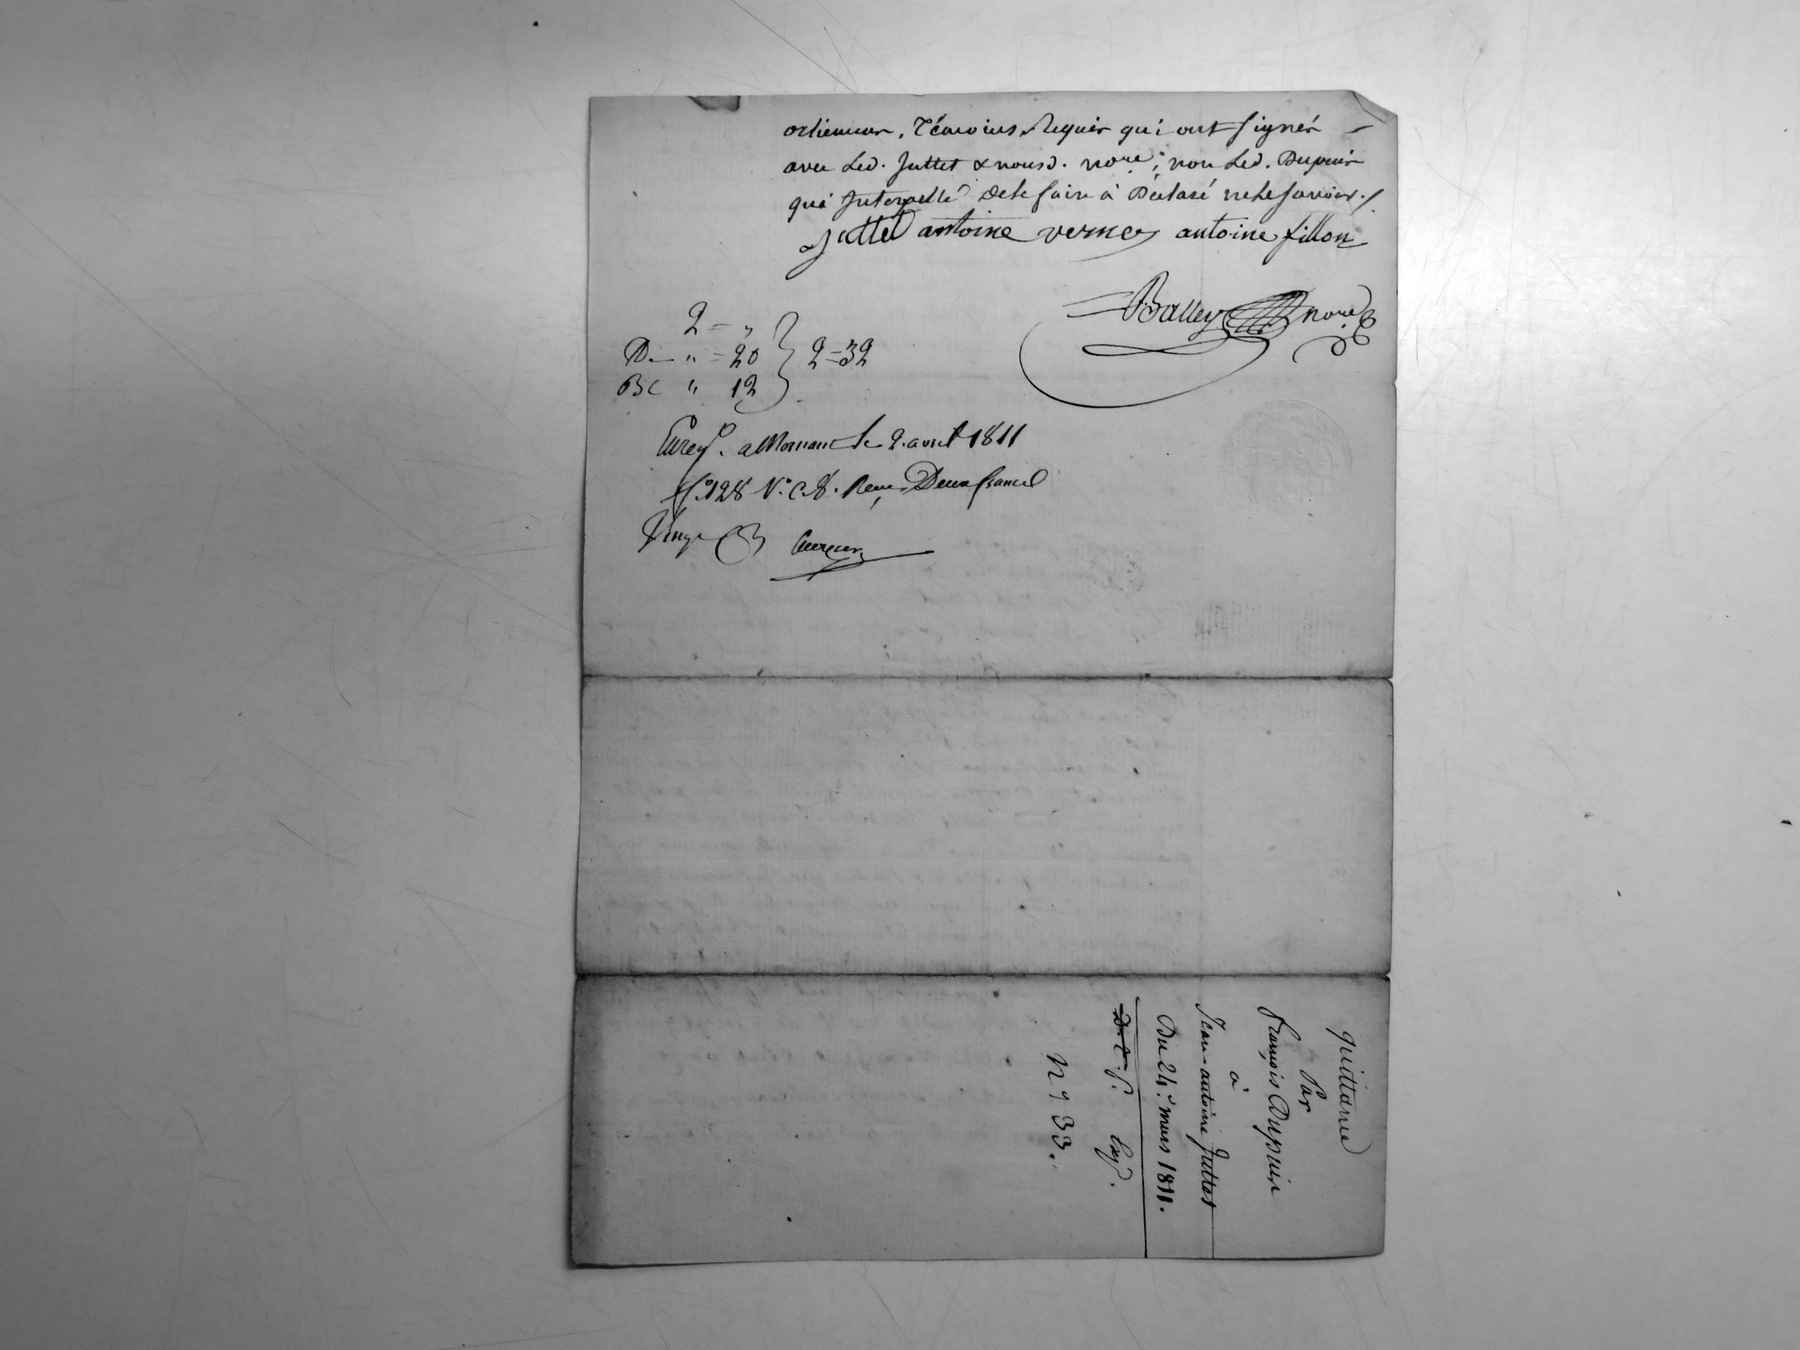 orlienuar, Témoins Requis qui ont signés
avec led. Juttet & nousd. nore; non led. Dupuis
qui Interpellé de le faire à Déclaré ne le savoir ./
Juttet antoine vernes antoine fillon
Balley nore
2 = "
D. " = 20
BC " 12
2 = 32
Enregt. à Mornant le 2. avril 1811
fo. 128 Vo. C. 8. Reçu Deux francs
Vingt
quittance
Par
françois Dupuis
à
Jean-antoine Juttet
Du 24. mars 1811.
Exp.
N 933.